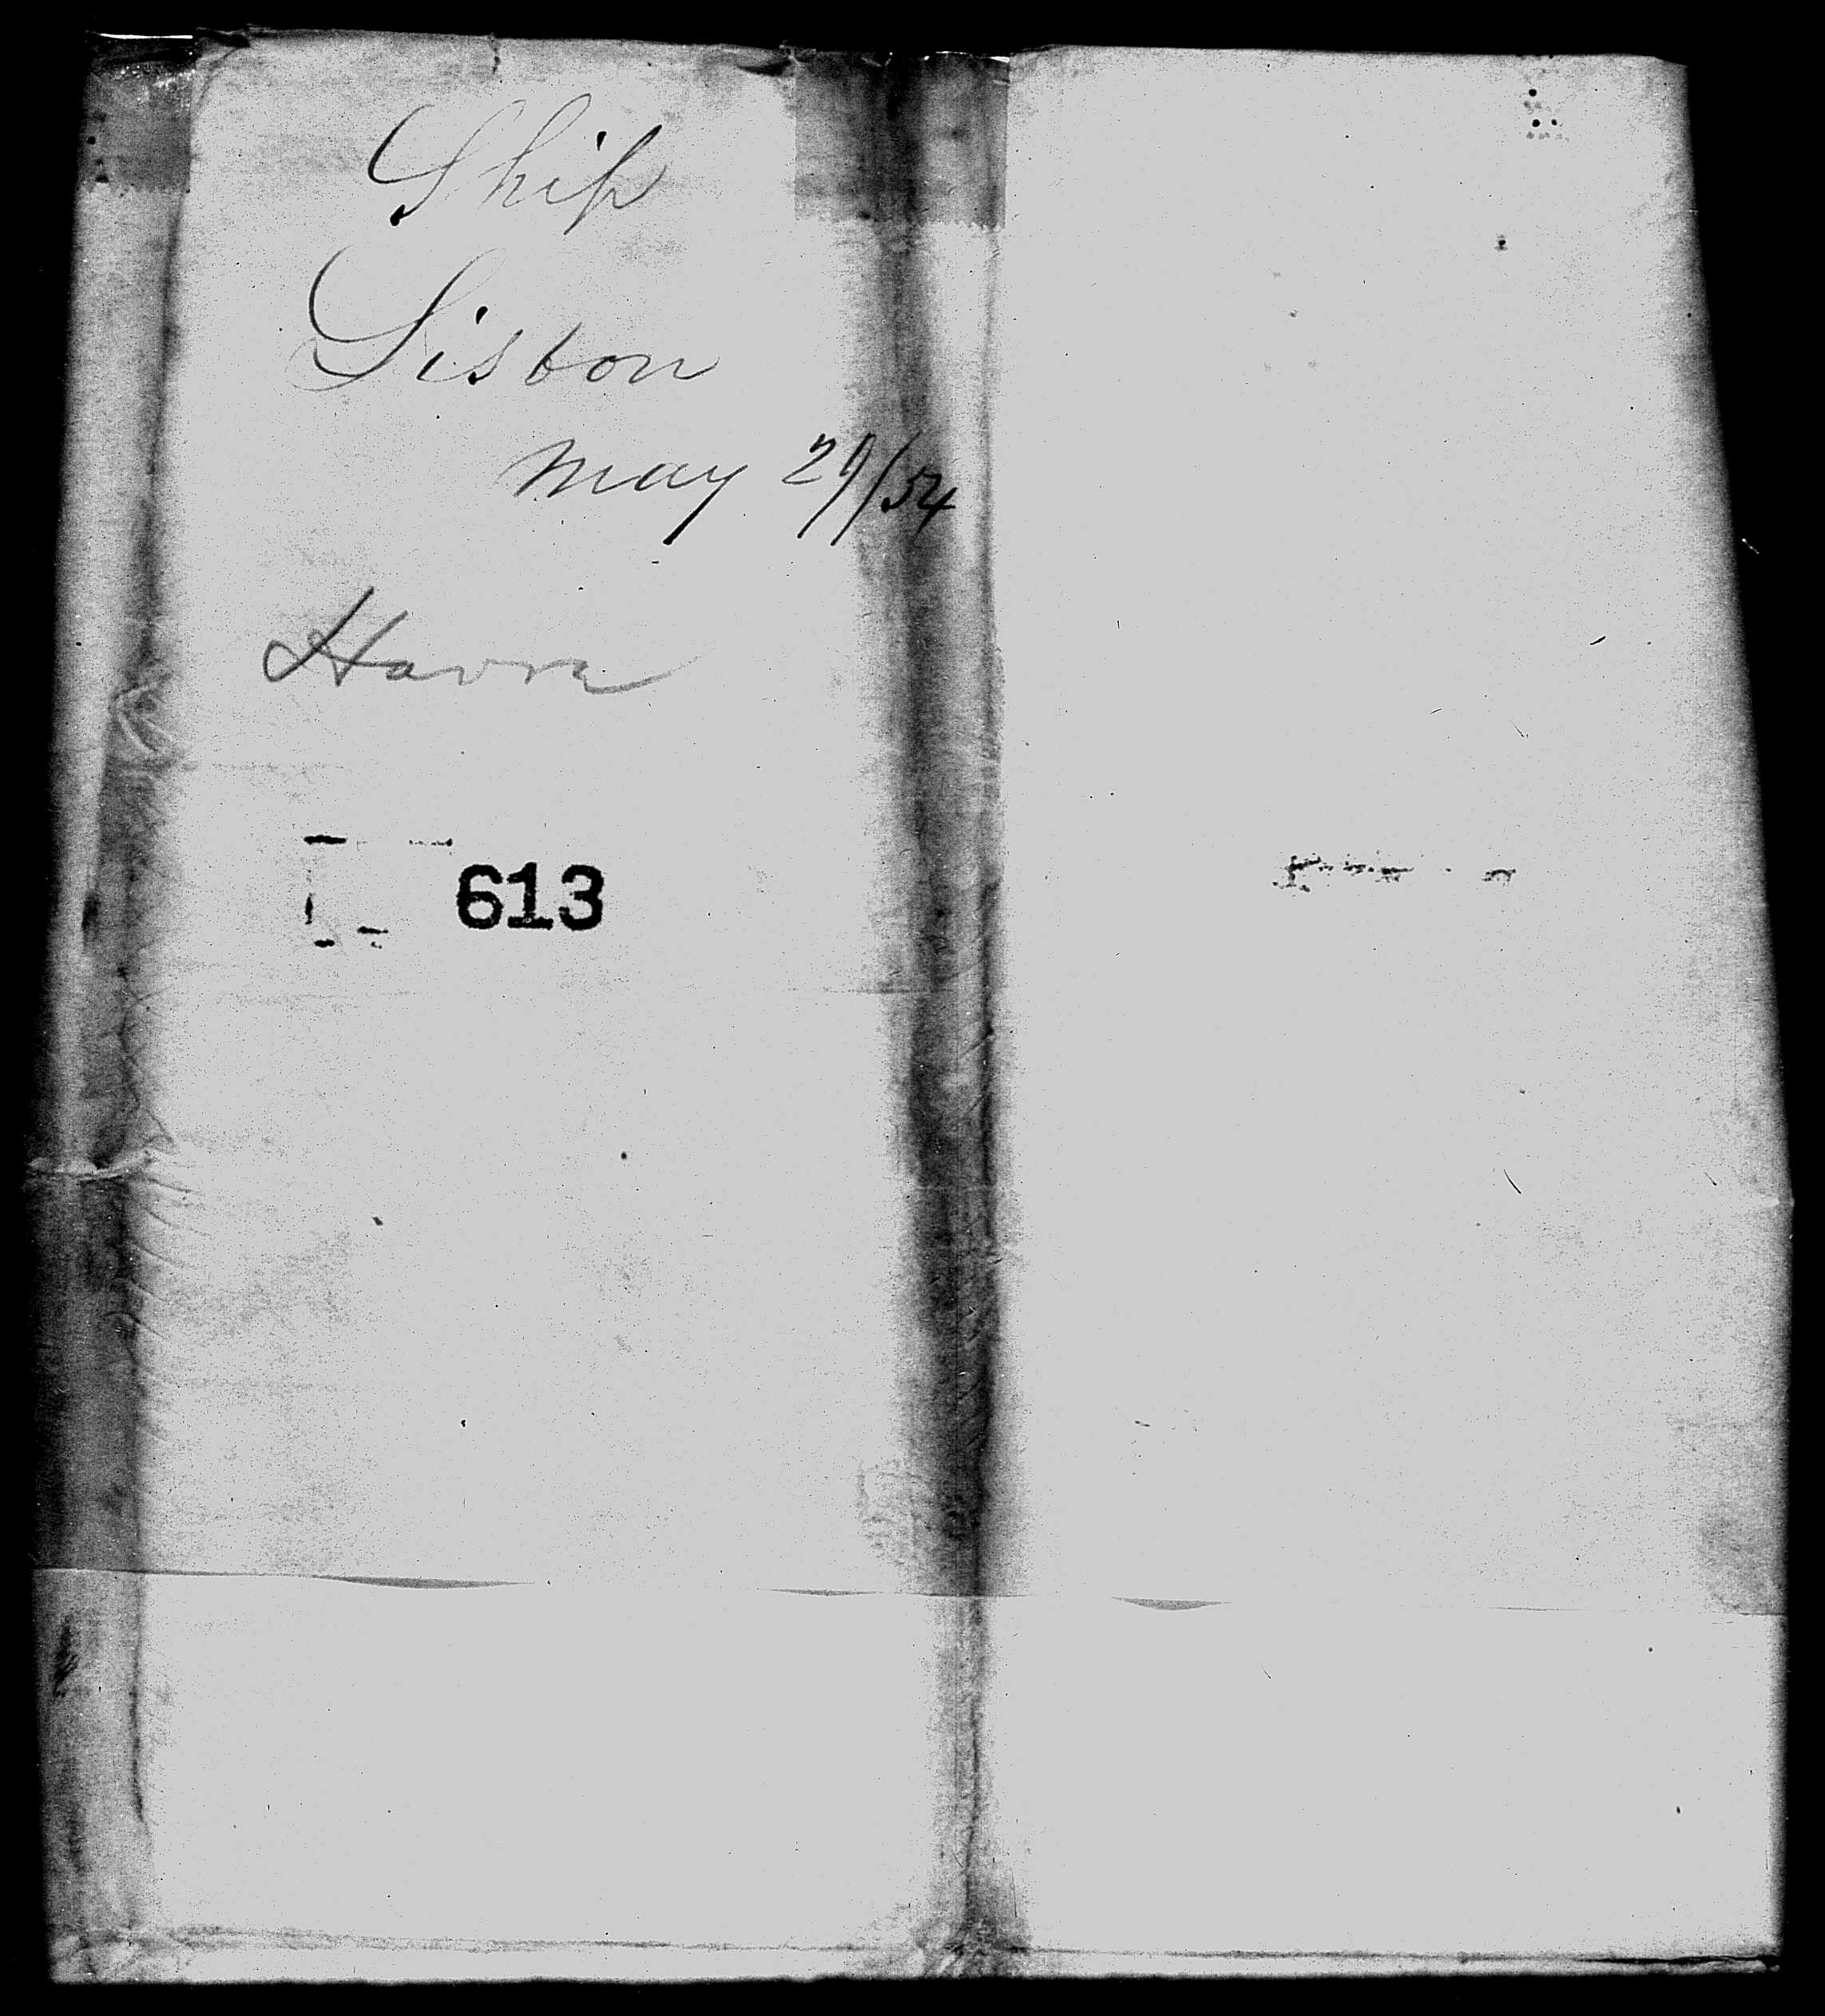 Ship
Lisbon
May 29/54
Havre
613